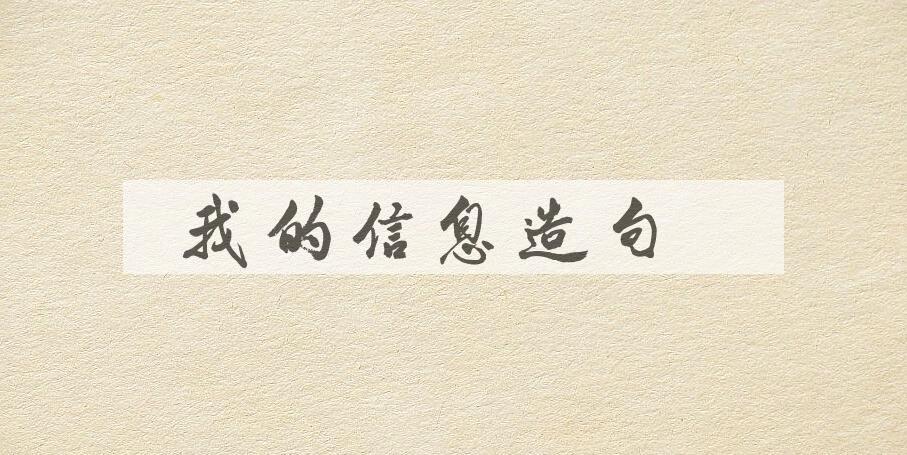 我的信息造句